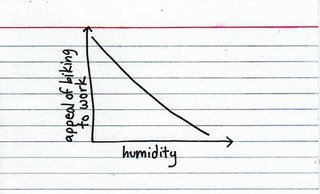 appeal of biking
to work
humidity